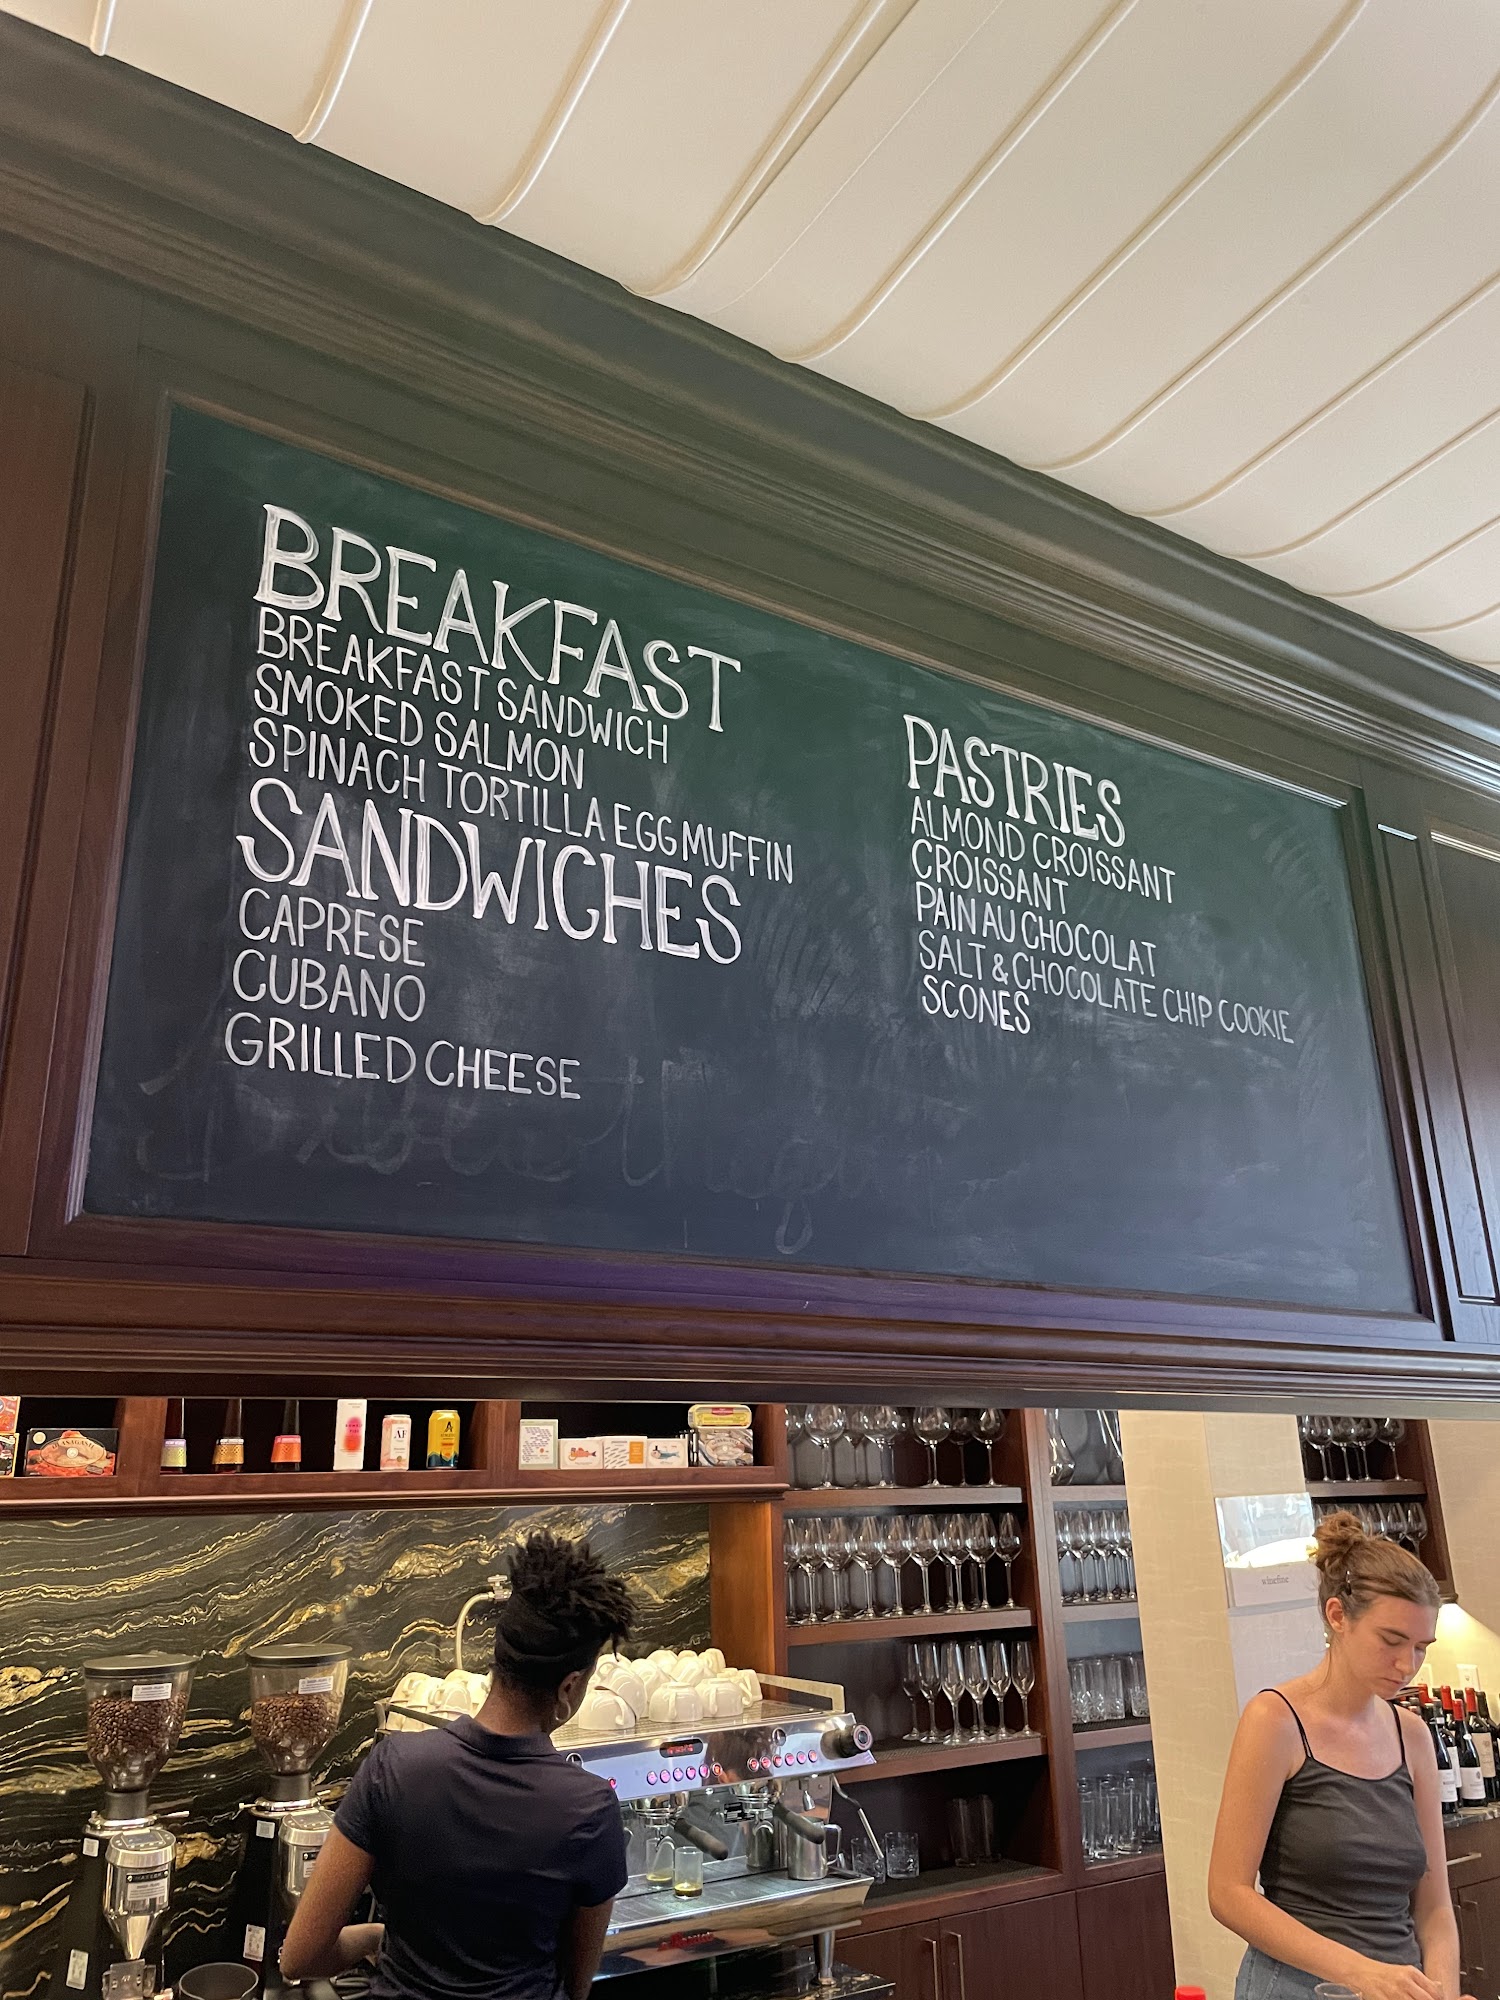 BREAKFAST
BREAKFAST SANDWICH
SMOKED SALMON
SPINACH TORTILLA EGG MUFFIN
SANDWICHES
CAPRESE
CUBANO
GRILLED CHEESE
PASTRIES
ALMOND CROISSANT
CROISSANT
PAIN AU CHOCOLAT
SALT & CHOCOLATE CHIP COOKIE
SCONES
AF
A